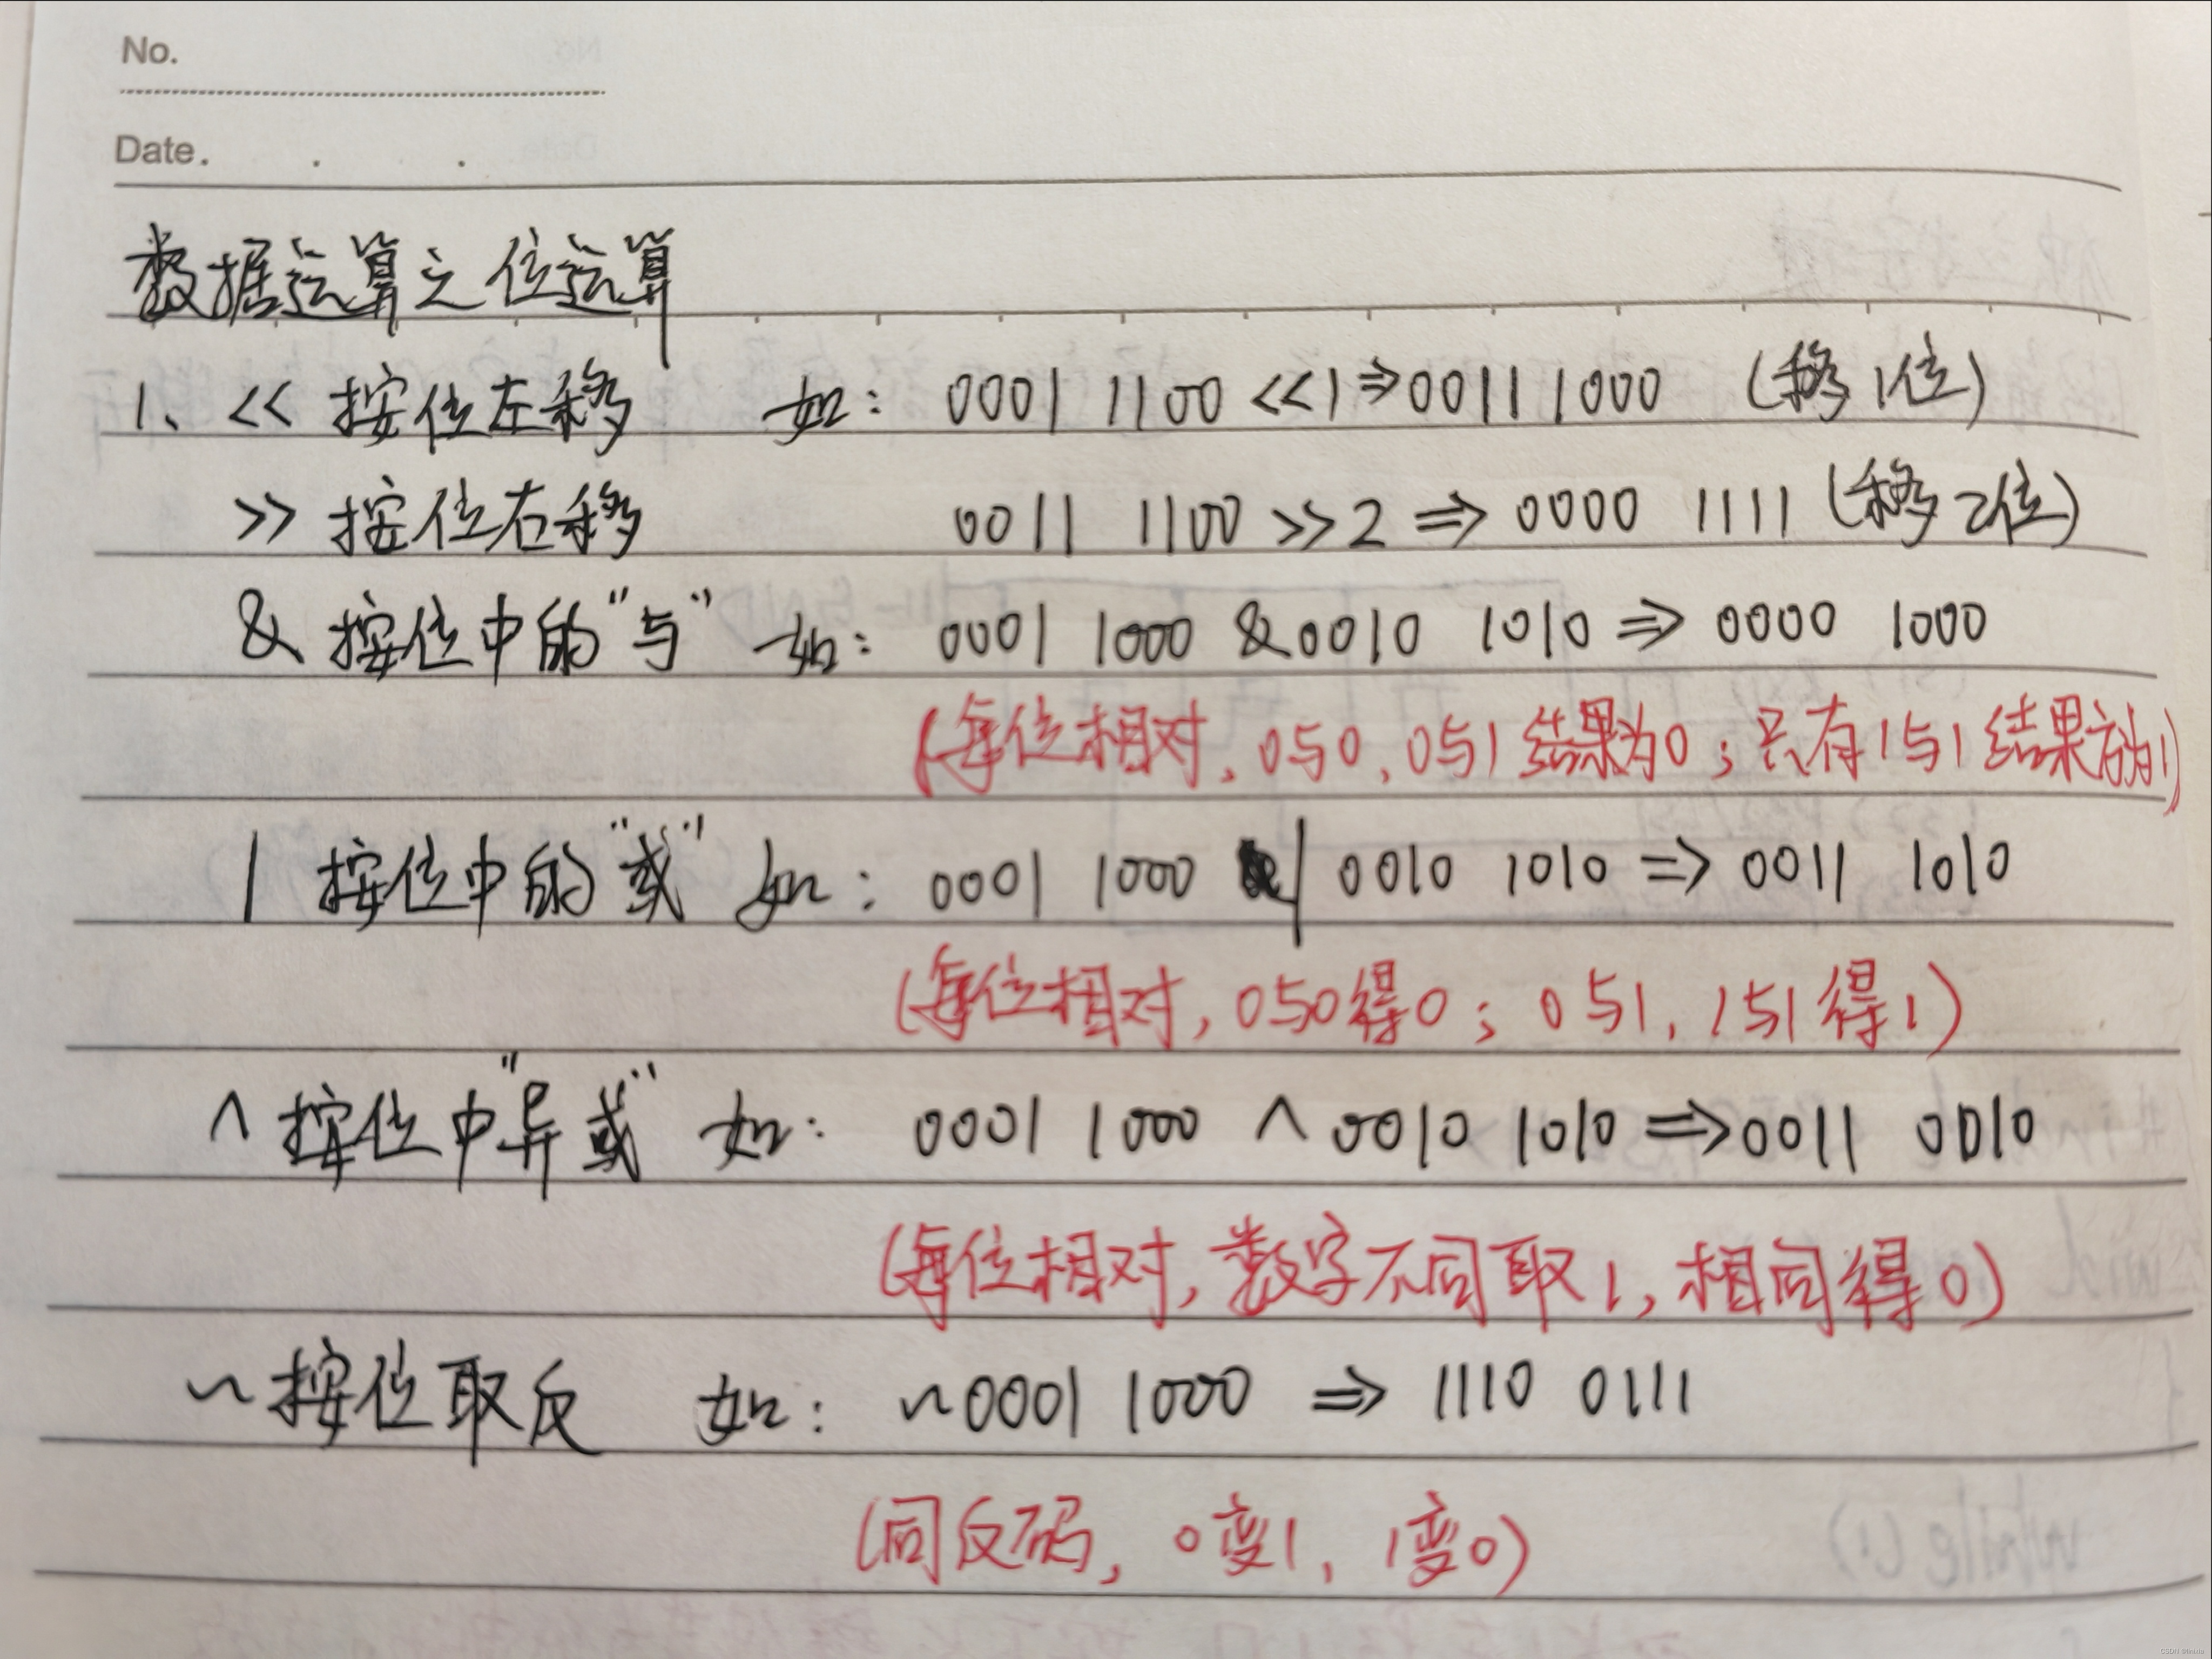 No.
Date.
数据运算之位运算
1、 << 按位左移 如: 0001 1100 <<1⇒0011 1000 (移1位)
>> 按位右移 0011 1100 >>2 ⇒ 0000 1111 (移2位)
& 按位中的"与" 如: 0001 1000 &0010 1010 ⇒ 0000 1000
(每位相对,0与0,0与1结果为0;只有1与1结果为1)
| 按位中的"或" 如: 0001 1000 | 0010 1010 ⇒ 0011 1010
(每位相对,0与0得0;0与1,1与1得1)
^ 按位中"异或" 如: 0001 1000 ^ 0010 1010 ⇒0011 0010
(每位相对,数字不同取1,相同得0)
~按位取反 如: ~0001 1000 ⇒ 1110 0111
(同反码,0变1,1变0)
while(1)